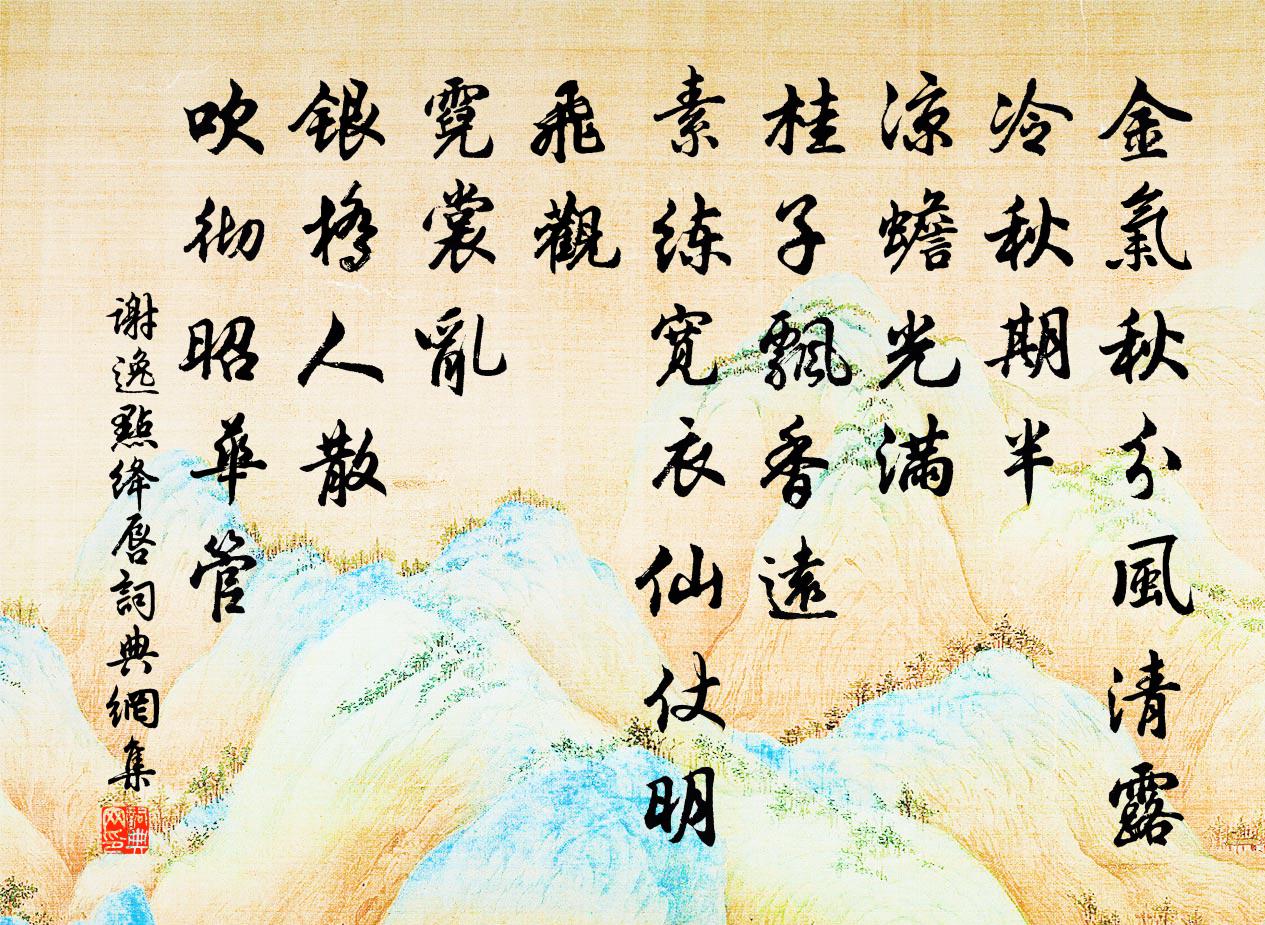 金氣秋分風清露
冷秋期半
涼蟾光滿
桂子飄香遠
素练寬衣仙仗明
飛觀
霓裳亂
銀橋人散
吹彻昭華管
謝逸點绛唇詞典網集
詞典网印